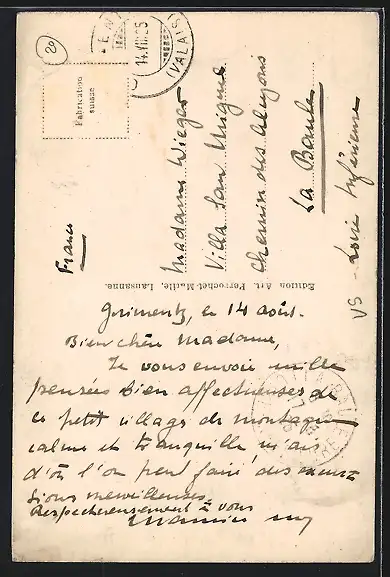 Grimentz, le 14 août.
Bien chère Madame,
Je vous envoie mille
pensées bien affectueuses de
ce petit village de montagne
calme et tranquille
d'où l'on peut faire des excur-
sions merveilleuses.
Respectueusement à vous
Madame Wieger
Villa San Miguel
Chemin des Alcyons
La Baule
Loire Inférieure
France
VS
Edition Art. Perrochet-Matile, Lausanne.
Fabrication
suisse
20
14.VIII.25
(VALAIS)